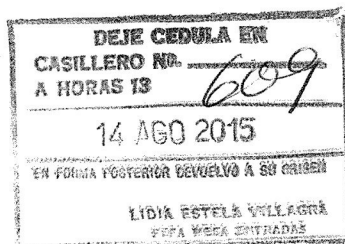 DEJE CEDULA EN
CASILLERO No. 609
A HORAS 13
14 AGO 2015
EN FORMA POSTERIOR DEVUELVO A SU ORIGEN
LIDIA ESTELA VILLAGRA
MESA ENTRADAS